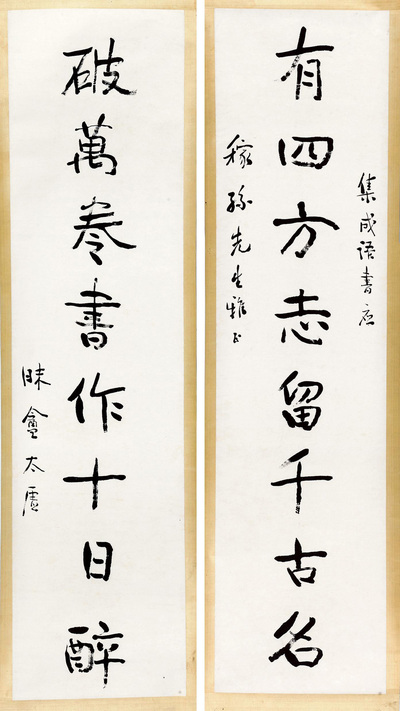 集成語書應
有四方志留千古名
稼孫先生雅正
破萬卷書作十日醉
昧盦太虛